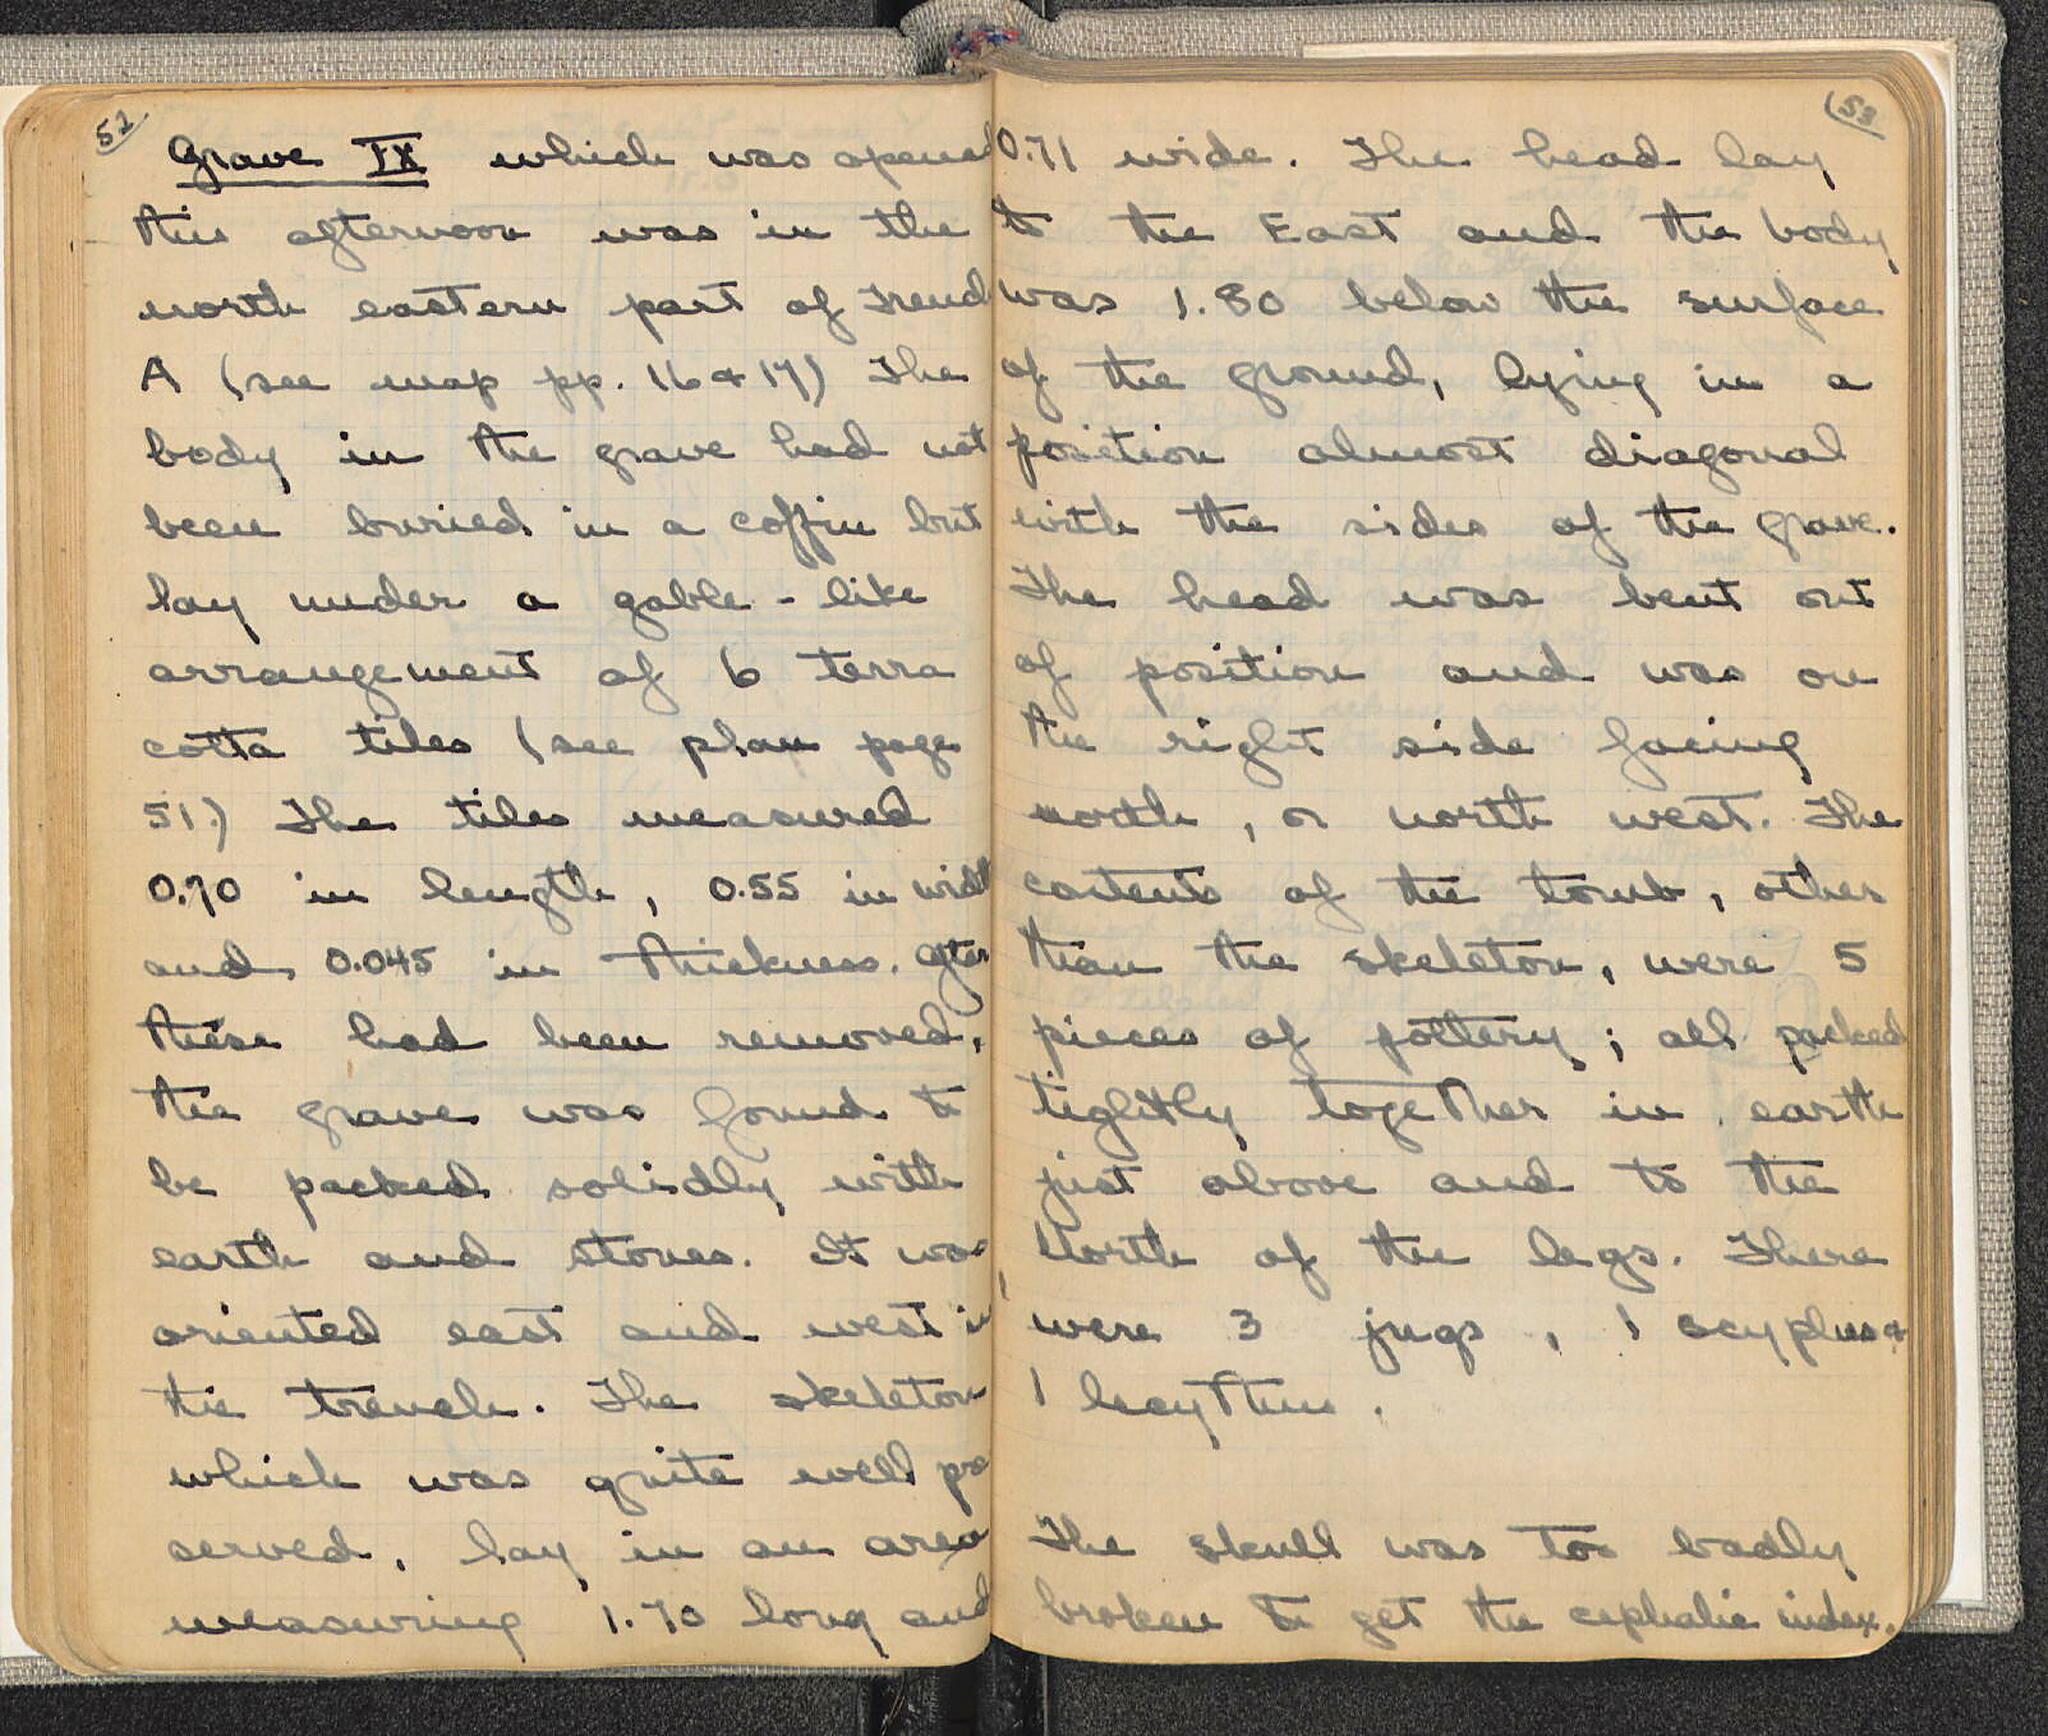 52
Grave IX which was opened
this afternoon was in the
north eastern part of Trench
A (see map pp. 16 & 17) The
body in the grave had not
been buried in a coffin but
lay under a gable-like
arrangement of 6 terra
cotta tiles (see plan page
51.) The tiles measured
0.70 in length, 0.55 in width
and 0.045 in thickness. After
these had been removed,
the grave was found to
be packed solidly with
earth and stones. It was
oriented east and west in
the trench. The skeleton
which was quite well pre
served, lay in an area
measuring 1.70 long and
53
0.71 wide. The head lay
to the East and the body
was 1.80 below the surface
of the ground, lying in a
position almost diagonal
with the sides of the grave.
The head was bent out
of position and was on
the right side facing
north, or north west. The
contents of the tomb, other
than the skeleton, were 5
pieces of pottery; all packed
tightly together in earth
just above and to the
North of the legs. There
were 3 jugs, 1 scyphus &
1 lecythus.
The skull was too badly
broken to get the cephalic index.